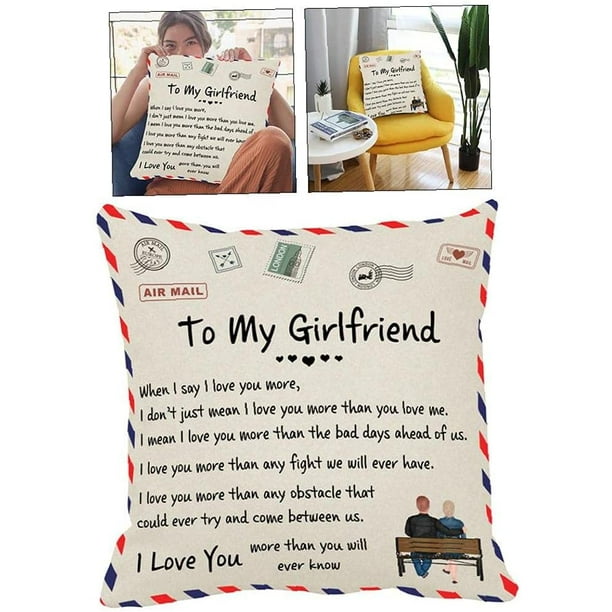 AIR MAIL
To My Girlfriend
When I say I love you more,
I don't just mean I love you more than you love me.
I mean I love you more than the bad days ahead of us.
I love you more than any fight we will ever have.
I love you more than any obstacle that
could ever try and come between us.
I Love You more than you will
ever know
To My Girlfriend
AIR MAIL
LONDON
LOVE MAIL
AIR MAIL
To My Girlfriend
When I say I love you more,
I don't just mean I love you more than you love me.
I mean I love you more than the bad days ahead of us.
I love you more than any fight we will ever have.
I love you more than any obstacle that
could ever try and come between us.
I Love You more than you will
ever know